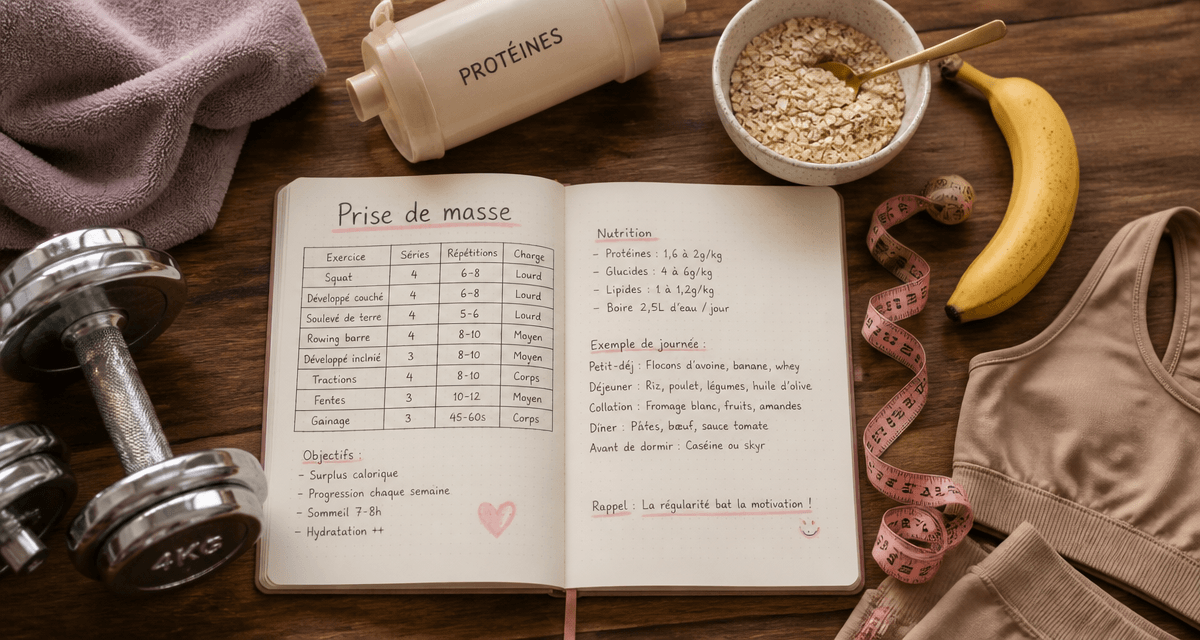 PROTÉINES
Prise de masse
Exercice Séries Répétitions Charge
Squat 4 6-8 Lourd
Développé couché 4 6-8 Lourd
Soulevé de terre 4 5-6 Lourd
Rowing barre 4 8-10 Moyen
Développé inclnié 3 8-10 Moyen
Tractions 4 8-10 Corps
Fentes 3 10-12 Moyen
Gainage 3 45-60s Corps
Objectifs :
- Surplus calorique
- Progression chaque semaine
- Sommeil 7-8h
- Hydratation ++
Nutrition
- Protéines : 1,6 à 2g/kg
- Glucides : 4 à 6g/kg
- Lipides : 1 à 1,2g/kg
- Boire 2,5L d'eau / jour
Exemple de journée :
Petit-déj : Flocons d'avoine, banane, whey
Déjeuner : Riz, poulet, légumes, huile d'olive
Collation : Fromage blanc, fruits, amandes
Dîner : Pâtes, bœuf, sauce tomate
Avant de dormir : Caséine ou skyr
Rappel : La régularité bat la motivation !
4KG